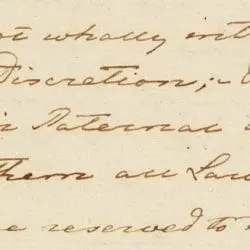 ot wholly int
Discretion;
Paternal
them all Law
e reserved to